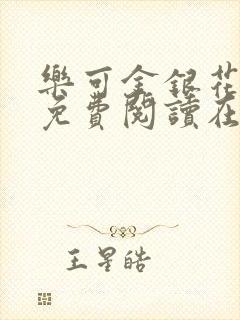 樂可金銀花
免費閱讀在
王星皓